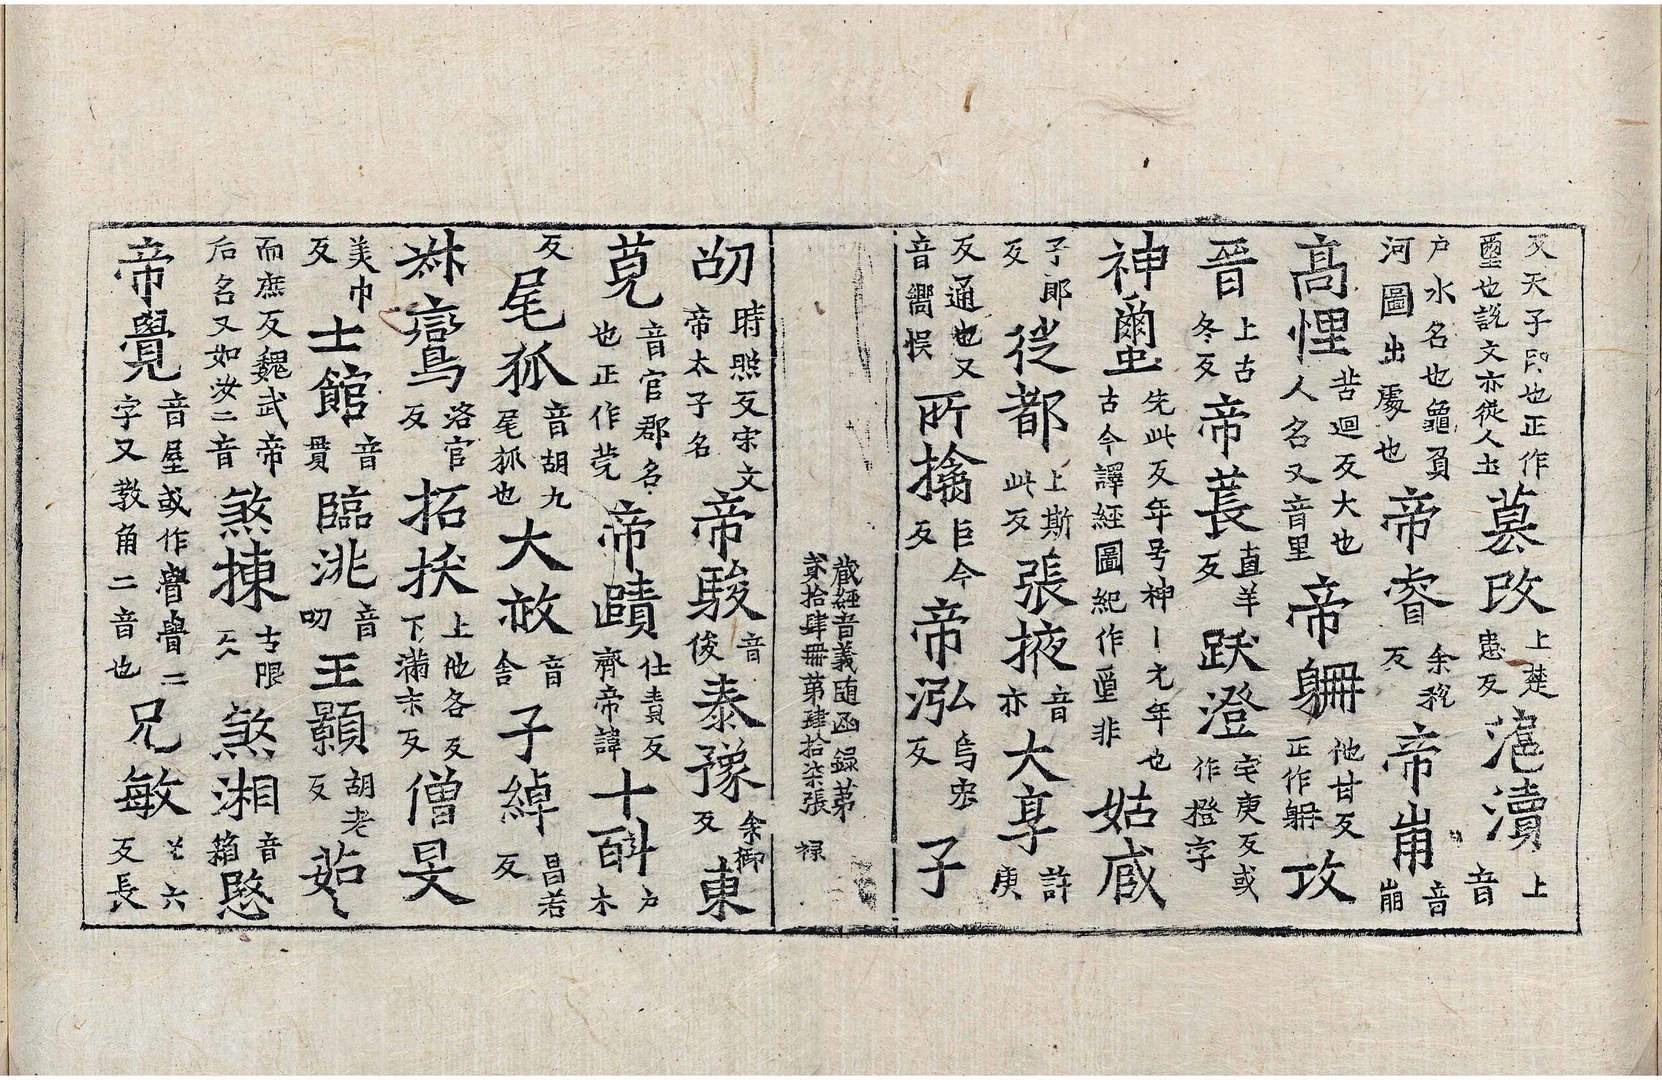 反天子印也正作璽也說文亦從人土墓改上楚患反滬瀆上音
户水名也龜負河圖出處也帝睿余稅反帝崩音崩
高悝苦迴反大也人名又音里帝聃他甘反正作躭攻
晉上古冬反帝萇直羊反跃澄宅庚反或作橙字
神璽先此反年号神丨元年也古今譯經圖紀作𡈼非姑臧
子郎反徙都上斯此反張掖音亦大享許庚
反通也又音嚮悮所擒巨今反帝泓烏宏反子
藏經音義隨函録第貳拾肆冊第肆拾柒張 禄
劭時照反宋文帝太子名帝駿音俊泰豫余御反東
莧音官郡名也正作莞帝賾仕責反齊帝諱十𣂏户木
反尾狐音胡九尾狐也大赦音舍子綽昌若反
𣏟鸞洛官反拓拔上他各反下滿末反僧旻
美巾反士館音貫臨洮音叨王顥胡老反茹〻
而庶反魏武帝后名又如汝二音煞揀古眼反煞湘音箱愍
帝覺音屋或作㝅嚳二字又教角二音也兄敏〻六反長